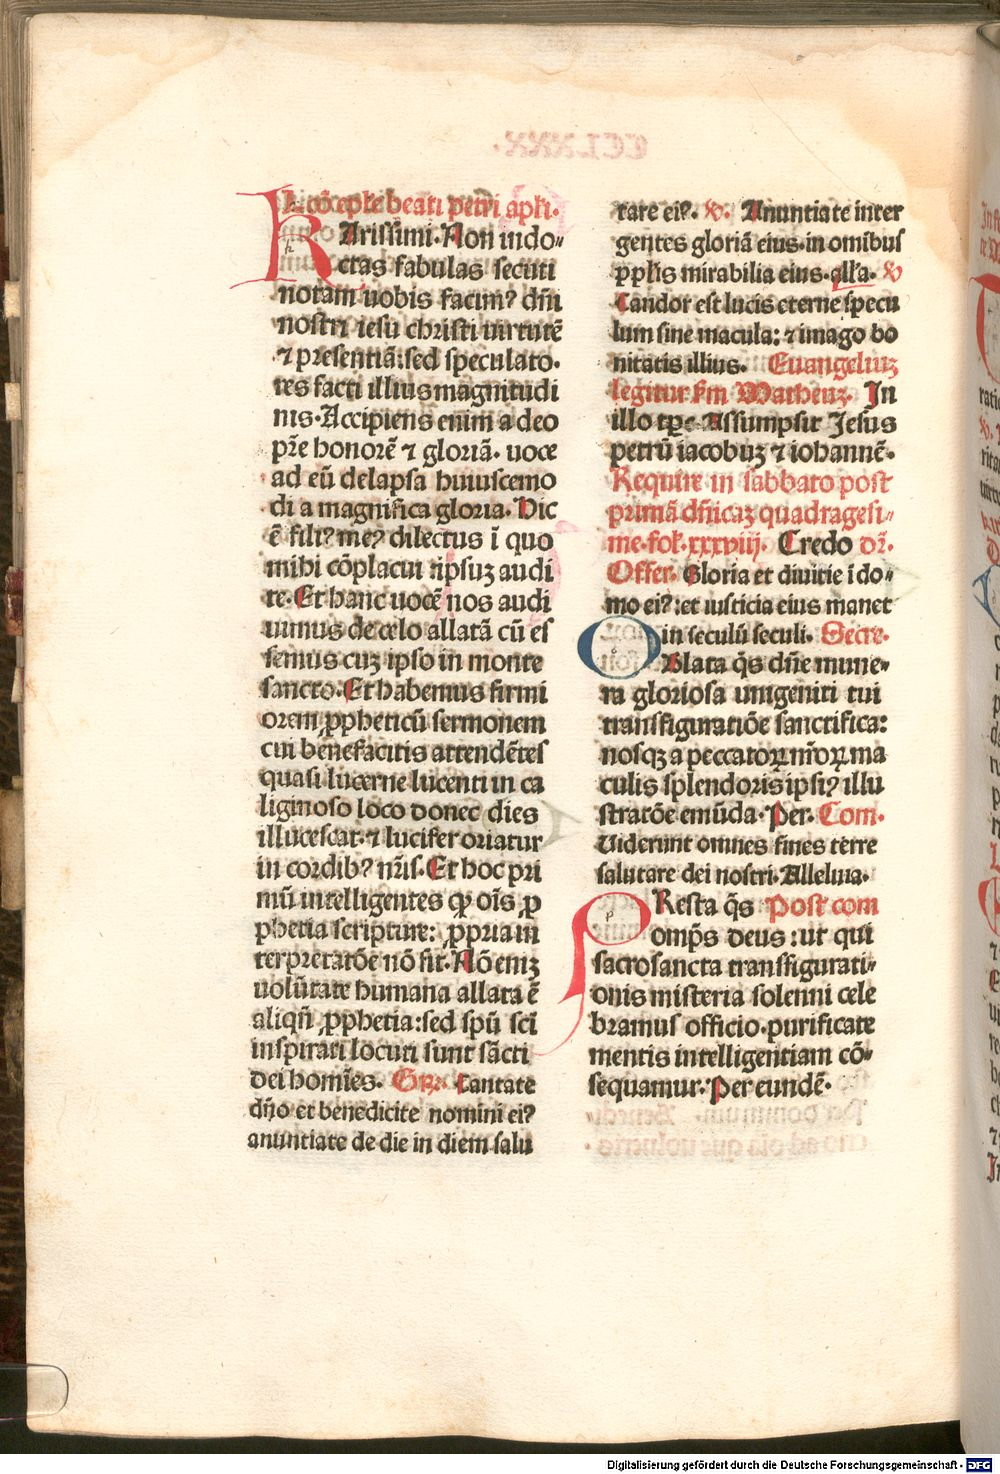 Lcō epłe beati petri apłi.
KArissimi. Non indo-
ctas fabulas secuti
notam uobis facimꝰ dñi
nostri iesu christi uirtutē
⁊ presentiā: sed speculato-
res facti illius magnitudi
nis. Accipiens enim a deo
pr̄e honorē ⁊ gloriā. uoce
ad eū delapsa huiuscemo
di a magnifica gloria. Dic
ē filiꝰ meꝰ dilectus ī quo
mihi cōplacui: ipsuꝫ audi
te. Et hanc uocē nos audi
uimus de celo allatā cū es
semus cuꝫ ipso in monte
sancto. Et habemus firmi
orem ꝓpheticū sermonem
cui benefacitis attendētes
quasi lucerne lucenti in ca
liginoso loco donec dies
illucescat. ⁊ lucifer oriatur
in cordibꝰ nr̄is. Et hoc pri
mū intelligentes ꝙ oīs ꝓ
phetia scripture: ꝓpria in
terpretatōe nō fit. Nō eniꝫ
uolūtate humana allata ē
aliqñ ꝓphetia: sed spū scī
inspirati locuti sunt sācti
dei homīes. Gꝛ. Cantate
dño et benedicite nomini eiꝰ
anuntiate de die in diem salu
tare eiꝰ. ℣. Anuntiate inter
gentes gloriā eius. in omībus
pꝓłis mirabilia eius. alła. ℣
Candor est lucis eterne specu
lum sine macula: ⁊ imago bo
nitatis illius. Euangeliuꝫ
legitur ẜm Matheuꝫ. In
illo tꝑe. Assumpsit Jesus
petrū iacobuꝫ ⁊ iohannē.
Require in sabbato post
primā dn̄icaꝫ quadragesi-
me. fol. xxxviij. Credo dꝛ.
Offer. Gloria et diuitie ī do-
mo eiꝰ: et iusticia eius manet
in seculū seculi. Secre.
OBlata q̄s dn̄e mune-
ra gloriosa unigeniti tui
transfiguratiōe sanctifica:
nosqꝫ a peccatoꝝ nr̄oꝝ ma
culis splendoris ipsiꝰ illu
stratōe emūda. Per. Com.
Uiderunt omnes fines terre
salutare dei nostri. Alleluia.
PResta q̄s Post com
omp̄s deus: ut qui
sacrosancta transfigurati-
onis misteria solenni cele
bramus officio. purificate
mentis intelligentiam cō-
sequamur. Per eundē.
Digitalisierung gefördert durch die Deutsche Forschungsgemeinschaft - DFG